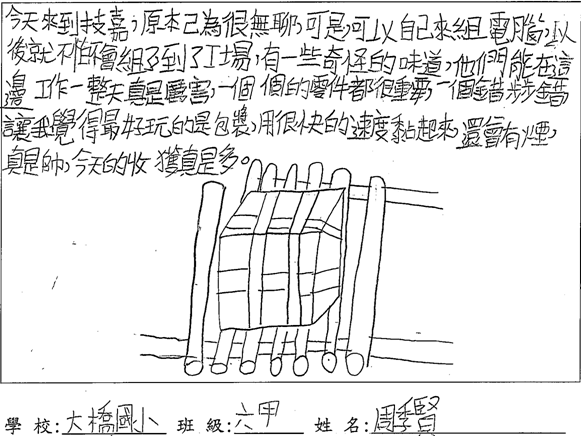 今天來到技嘉,原本己為很無聊,可是,可以自己來組電腦,以
後就不怕不會組了到了工場,有一些奇怪的味道,他們能在這
邊工作一整天真是厲害,一個個的零件都很重要,一個錯步錯
讓我覺得最好玩的是包裝,用很快的速度黏起來,還會有煙,
真是帥,今天的收獲真是多。
學校:大橋國小 班級:六甲 姓名:周季賢